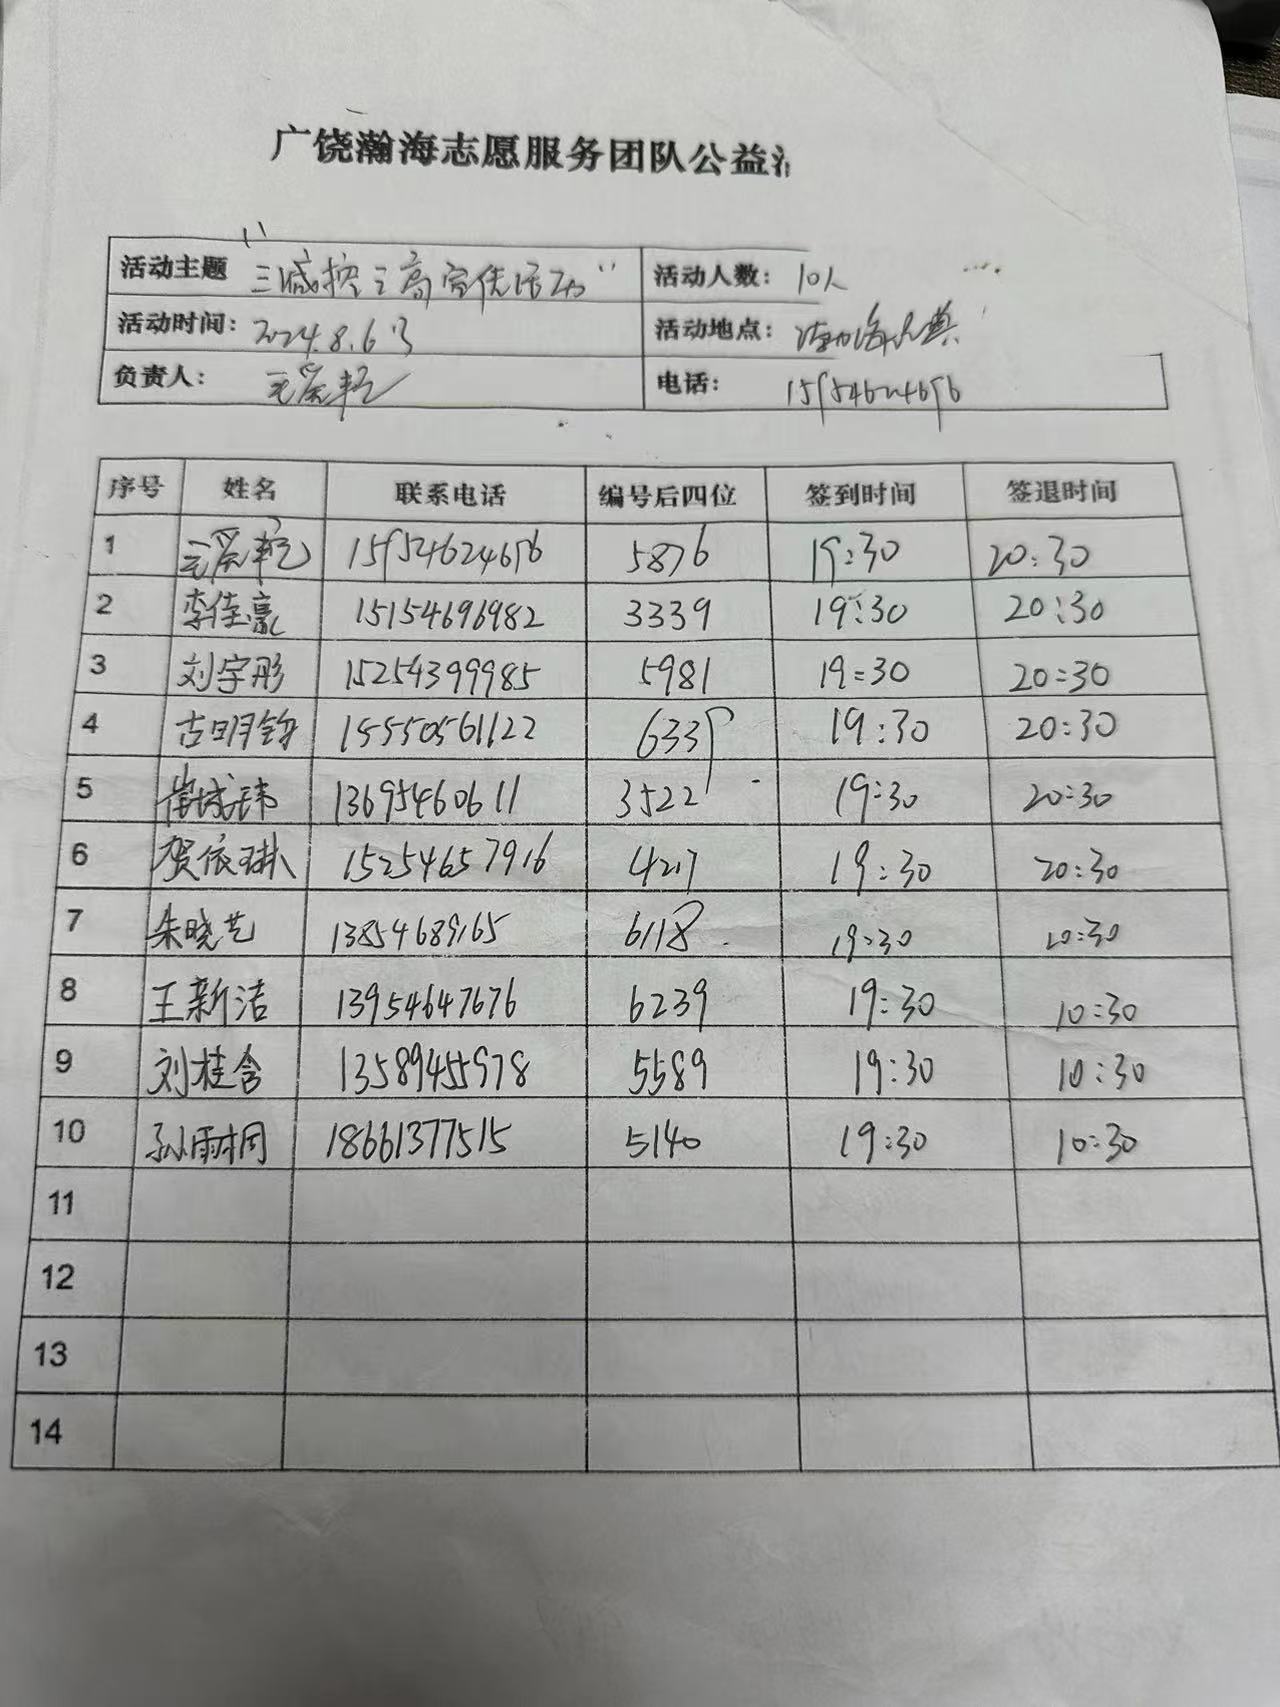 广饶瀚海志愿服务团队公益
活动主题 "三减控三高宣传活动" 活动人数: 10人
活动时间: 2024.8.6日 活动地点:
负责人: 电话: 15954624696
序号 姓名 联系电话 编号后四位 签到时间 签退时间
1 15954624696 5876 19:30 20:30
2 李佳豪 15154696982 3339 19:30 20:30
3 刘宇彤 15254399985 5981 19:30 20:30
4 古明钧 15550561122 6339 19:30 20:30
5 崔城玮 13695460611 3522 19:30 20:30
6 贺依琳 15254657916 4217 19:30 20:30
7 朱晓艺 13854689165 6118 19:30 20:30
8 王新洁 13954647676 6239 19:30 10:30
9 刘桂含 13589455978 5589 19:30 10:30
10 孙雨桐 18661377515 5140 19:30 10:30
11
12
13
14